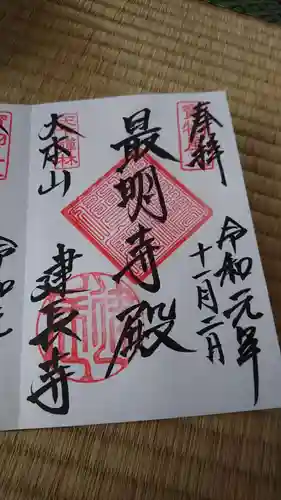 奉拝
令和元年
十一月二日
最明寺殿
大本山
建長寺